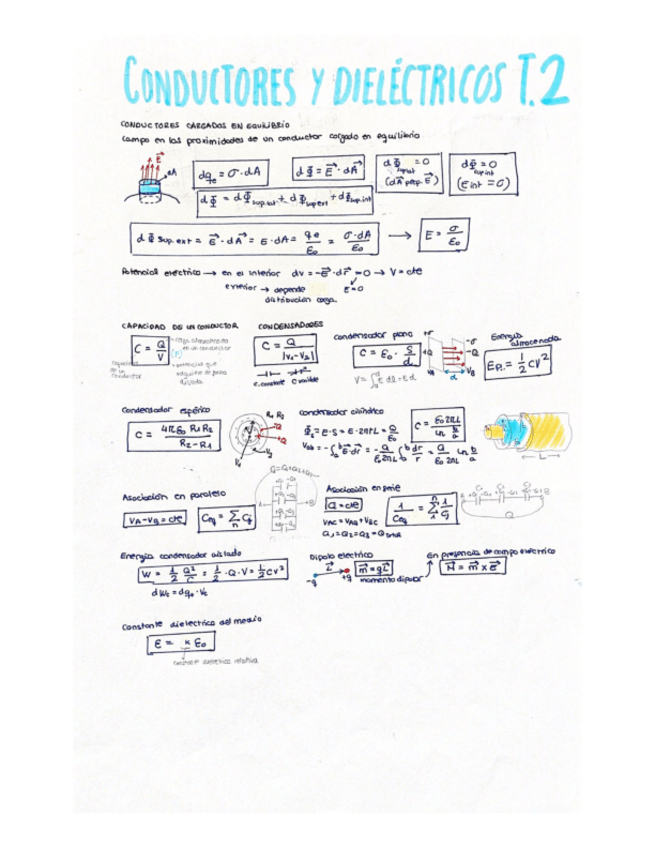 CONDUCTORES Y DIELÉCTRICOS T.2
CONDUCTORES CARGADOS EN EQUILIBRIO
Campo en las proximidades de un conductor cargado en equilibrio
E⃗ dA
dq_e = σ·dA
dΦ = E⃗·dA⃗
dΦ sup.lat = 0 (dA⃗ perp. E⃗)
dΦ sup.int = 0 (E int = 0)
dΦ = dΦ sup.lat + dΦ sup.ext + dΦ sup.int
dΦ sup.ext = E⃗·dA⃗ = E·dA = q e/ε₀ = σ·dA/ε₀ → E = σ/ε₀
Potencial eléctrico → en el interior dv = -E⃗·dr⃗ = 0 → V = cte
exterior → depende E=0
distribución carga.
CAPACIDAD DE UN CONDUCTOR CONDENSADORES
C = Q/V
carga almacenada en un conductor
(F)
capacidad de un conductor
potencial que adquiere
C = Q/|V_A-V_B|
C.constante C variable
condensador plano
C = ε₀·S/d
V = ∫₀ᵈ E dl = Ed
+σ -σ
+Q -Q
V_A d V_B
Energía almacenada
E_P = 1/2 CV²
Condensador esférico
C = 4πε₀ R₁R₂/R₂-R₁
R₁ R₂
-Q
+Q
V₁ V₂
Condensador cilíndrico
Φ = E·S = E·2πrL = Q/ε₀
V_ab = -∫ₐᵇ E⃗·dr⃗ = -Q/ε₀2πL ∫ₐᵇ dr/r = Q/ε₀2πL ln b/a
C = ε₀2πL/ln b/a
L
Asociación en paralelo
V_A-V_B = cte
C_eq = Σₙ Cᵢ
Asociación en serie
Q = cte
V_AC = V_AB + V_BC
Q₁=Q₂=Q₃=Q total
1/C_eq = Σ 1/Cᵢ
Q
Energía condensador aislado
W = 1/2 Q²/C = 1/2·Q·V = 1/2 CV²
Dipolo eléctrico
L⃗
-q +q
m⃗ = qL⃗
momento dipolar
En presencia de campo eléctrico
M⃗ = m⃗ x E⃗
Constante dieléctrica del medio
ε = κ ε₀
constante dieléctrica relativa